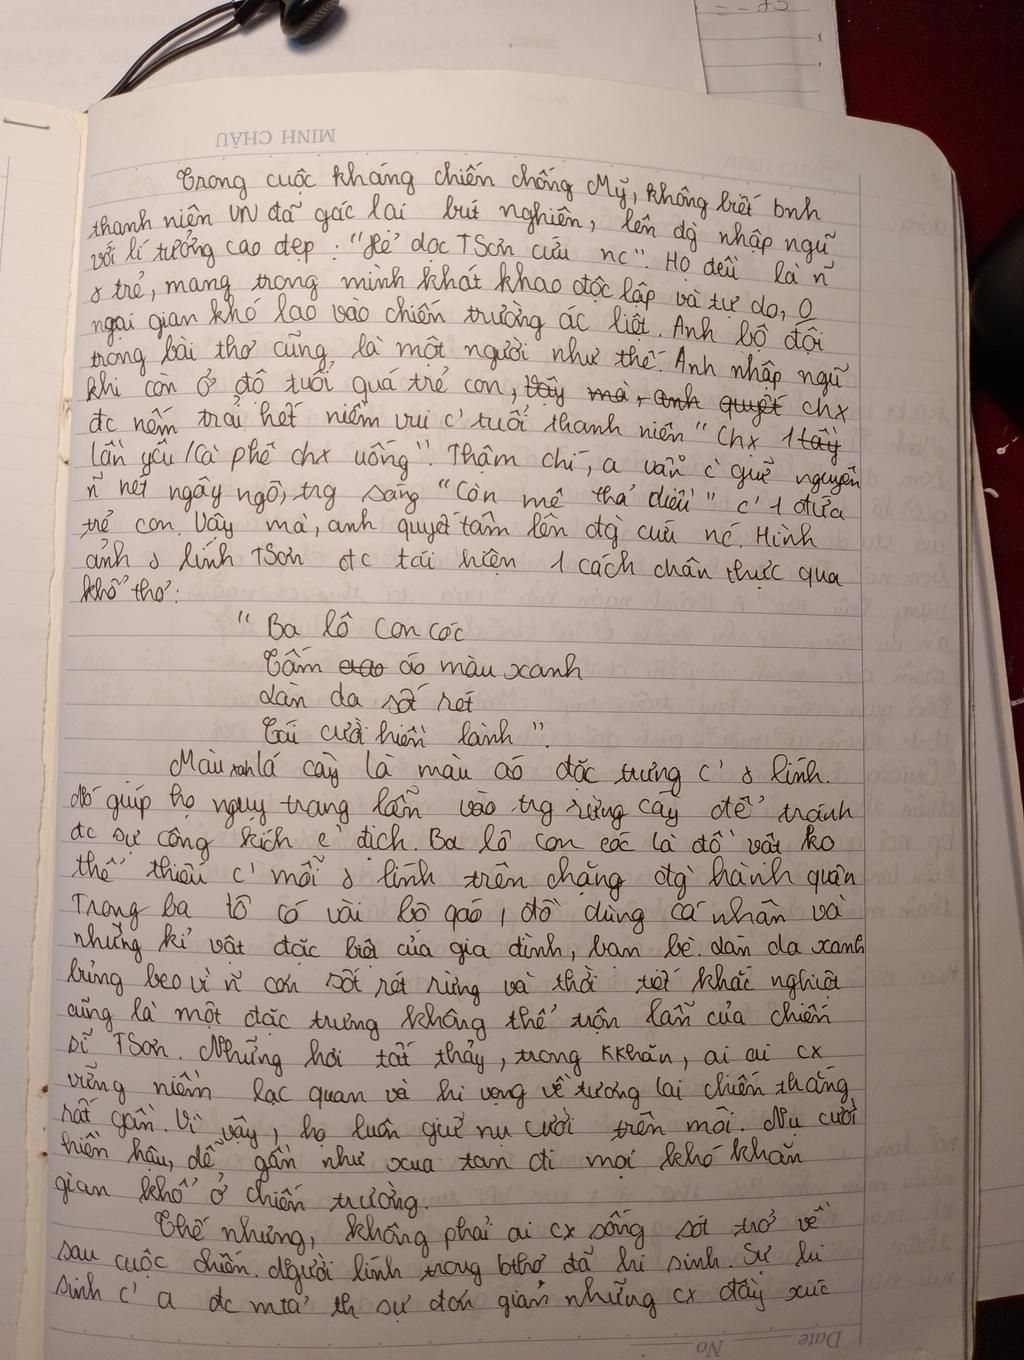 = - 75
MINH CHÂU
Trong cuộc kháng chiến chống Mỹ, không biết bnh
thanh niên VN đã gác lại bút nghiên, lên đg nhập ngũ
với lí tưởng cao đẹp: "Xẻ dọc TSơn cứu nc". Họ đều là ~n
trẻ, mang trong mình khát khao độc lập và tự do, O
ngại gian khó lao vào chiến trường ác liệt. Anh bộ đội
trong bài thơ cũng là một người như thế. Anh nhập ngũ
khi còn ở độ tuổi quá trẻ con, vậy mà, anh quyết chx
đc nếm trải hết niềm vui c' tuổi thanh niên "Chx 1
lần yêu / Cà phê chx uống". Thậm chí, a vẫn c̀ giữ nguyên
~n nét ngây ngô, trg sáng "Còn mê thả diều" c' 1 đứa
trẻ con. Vậy mà, anh quyết tâm lên đg cứu nc. Hình
ảnh lính TSơn đc tái hiện 1 cách chân thực qua
khổ thơ:
"Ba lô con cóc
Tấm áo màu xanh
Làn da sốt rét
Cái cười hiền lành".
Màu xanh lá cây là màu áo đặc trưng c' lính.
Nó giúp họ ngụy trang lẫn vào trg rừng cây để tránh
đc sự công kích c̉ địch. Ba lô con cóc là đồ vật ko
thể thiếu c' mỗi lính trên chặng đg hành quân
Trong ba lô có vài bò gạo, đồ dùng cá nhân và
những kỉ vật đặc biệt của gia đình, bạn bè. Làn da xanh
bủng beo vì ~n cơn sốt rét rừng và thời tiết khắc nghiệt
cũng là một đặc trưng không thể trộn lẫn của chiến
sĩ TSơn. Nhưng hơi tất thảy, trong kkhăn, ai ai cx
vững niềm lạc quan và hi vọng về tương lai chiến thắng
rất gần. Vì vậy, họ luôn giữ nụ cười trên môi. Nụ cười
hiền hậu, dễ gần như xua tan đi mọi khó khăn
gian khổ ở chiến trường.
Thế nhưng, không phải ai cx sống sót trở về
sau cuộc chiến. Người lính trong bthơ đã hi sinh. Sự hi
sinh c' a đc miả th sự đơn giản nhưng cx đầy xúc
Date No